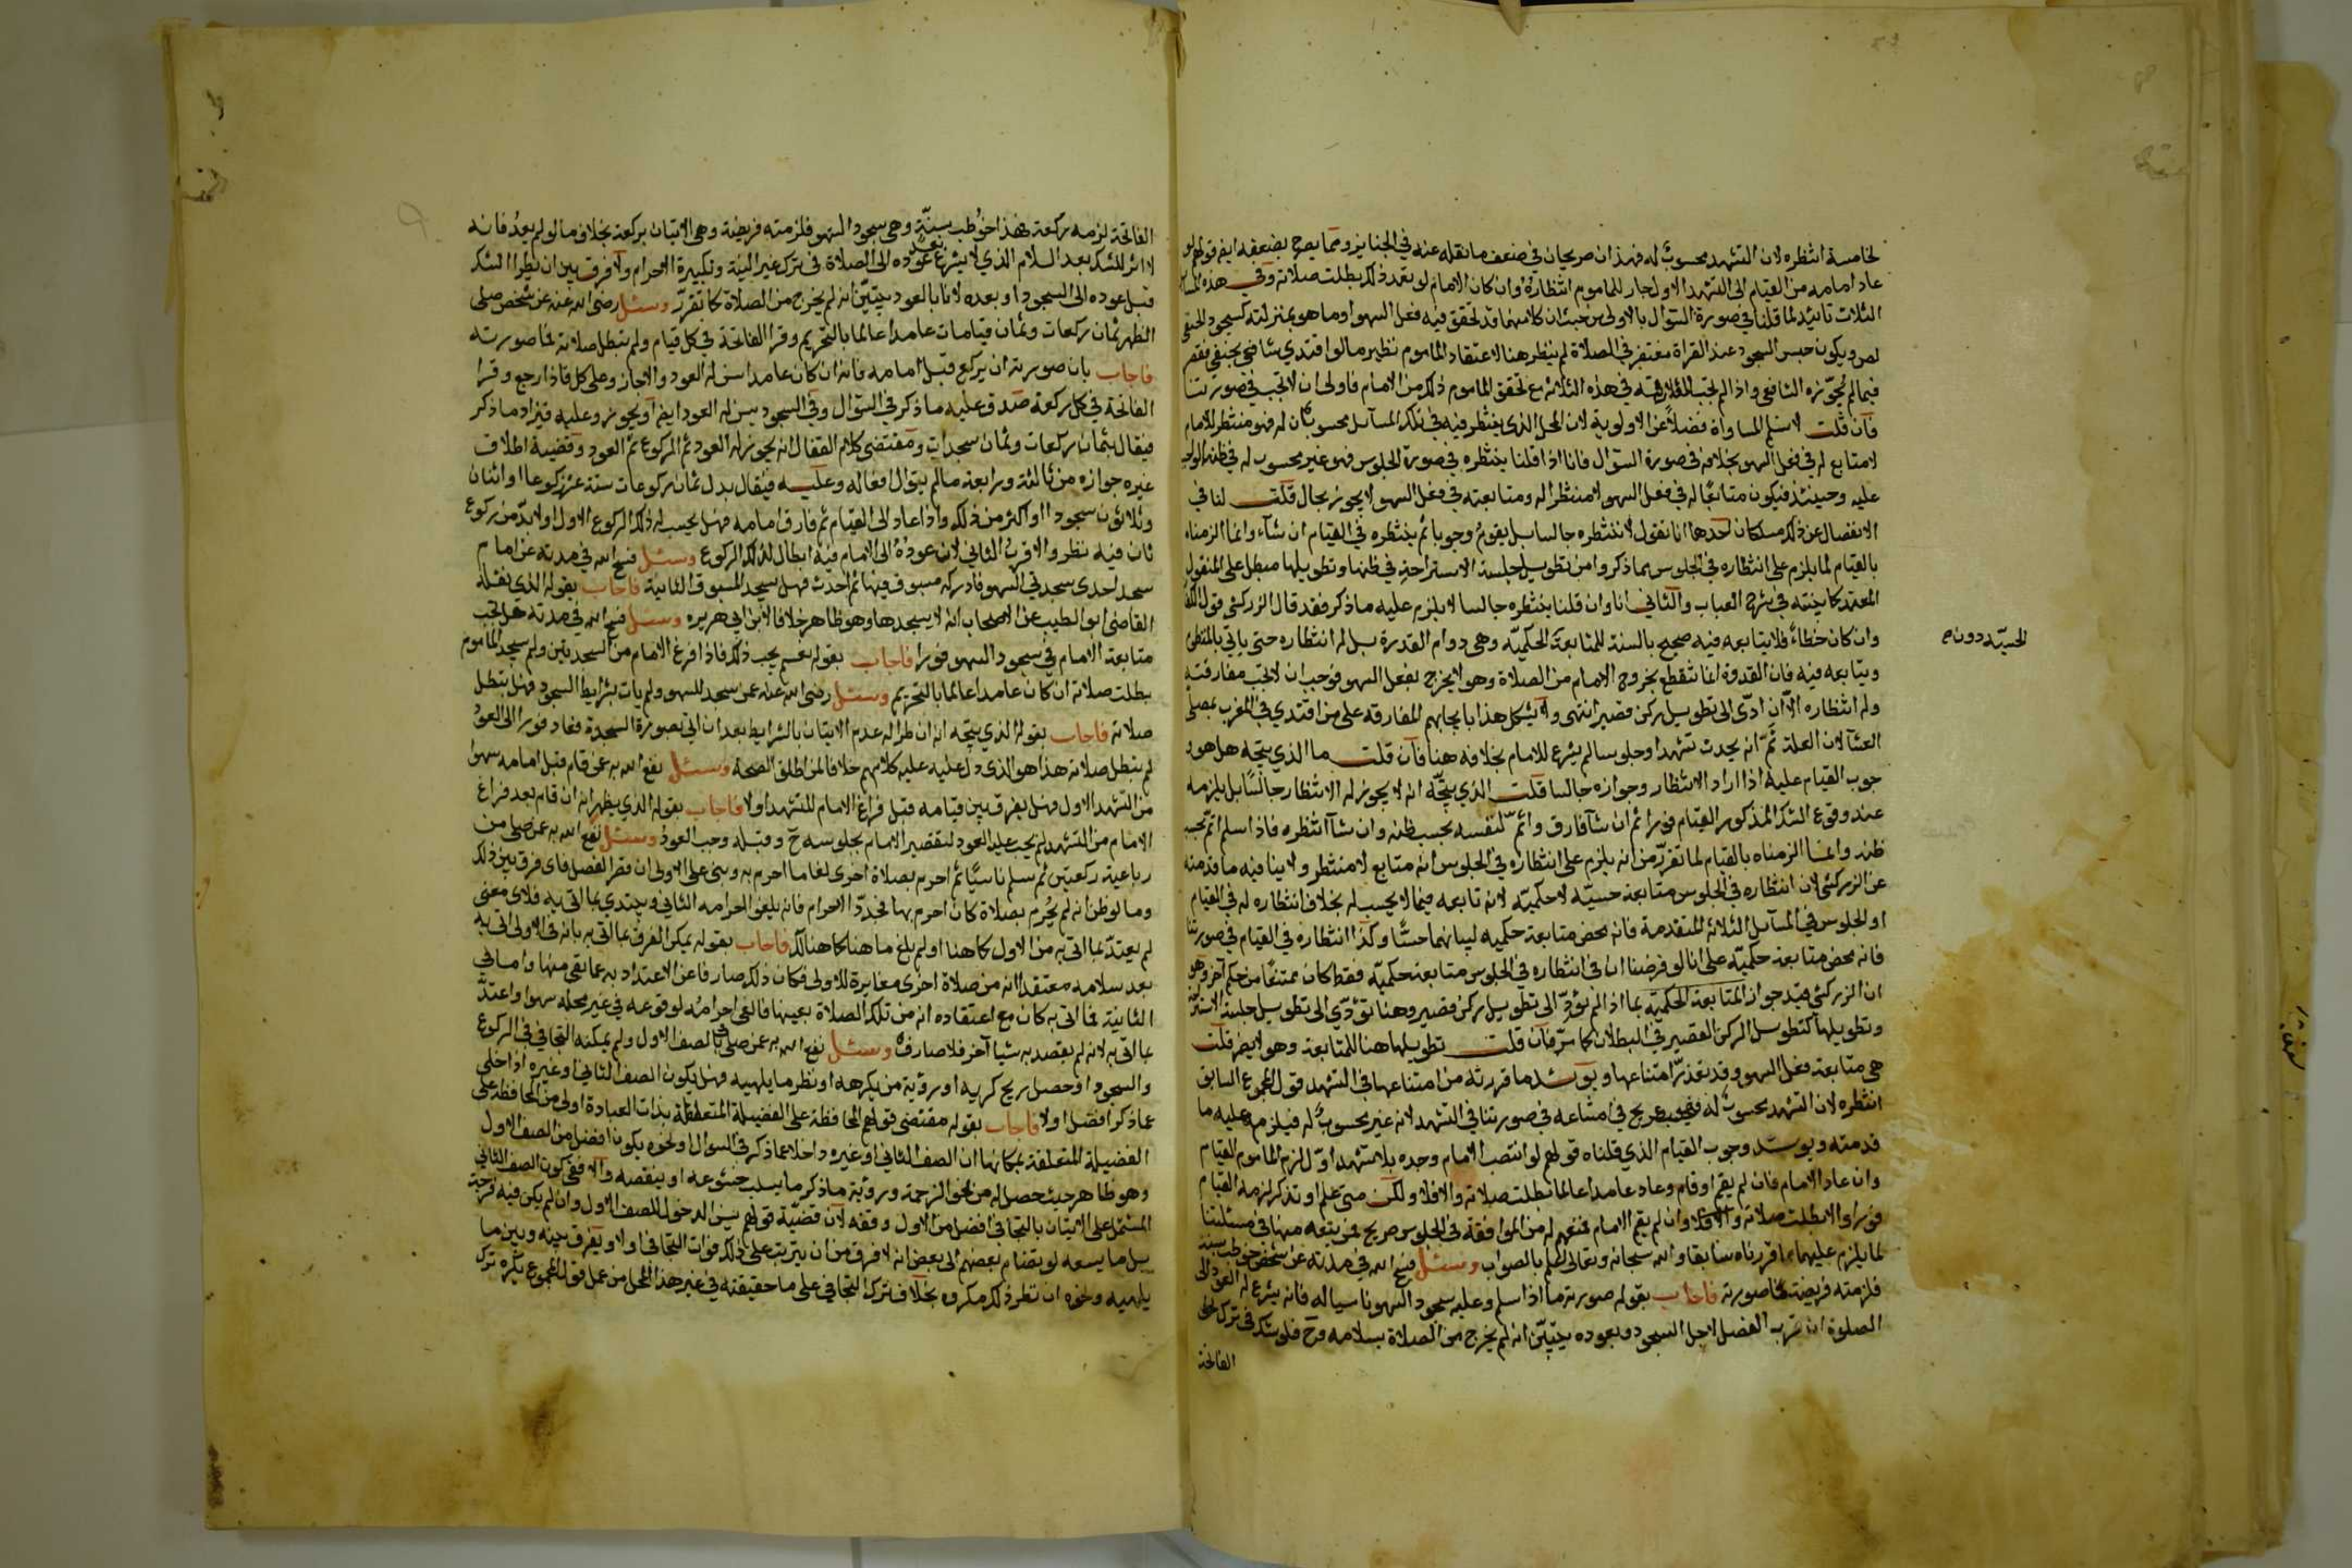 لخامسة انتظره لان التشهد محسوب له فهذان صريحان في ضعف ما نقله عنه في الجنايز ومما يصرح بضعفه ايضا قولهم لو
عاد امامه من القيام الى التشهد الاول جاز للماموم انتظاره وان كان الامام لو تعمد ذلك بطلت صلاته وفي هذه المسائل
الثلاث تائيد لما قلنا في صورة السؤال بالاولى من حيث ان كلا منهما قد تحقق فيه فعل السهو او ما هو بمنزلته كسجود الحنفي
لص ويكون جنس السجود عند القراة مغتفر في الصلاة لم ينظر هنا لاعتقاد الماموم نظير ما لو اقتدى شافعي بحنفي يقصر
فيما لم يجوزه الشافعي واذا لم تجب المفارقة في هذه الثلاثة مع تحقق الماموم ذلك من الامام فاولى ان لا تجب في صورتنا
فان قلت لا نسلم المساواة فضلا عن الاولوية لان المحل الذي ينتظر فيه في تلك المسائل محسوب له فهو منتظر للامام
لا متابع له في فعل السهو بخلافه في صورة السؤال فانا اذا قلنا ينتظره في صورة الجلوس فهو غير محسوب له في ظنه الواجب
عليه وحينئذ فيكون متابعا له في فعل السهو لا منتظرا له ومتابعته في فعل السهو لا يجوز بحال قلت لنا في
الانفصال عن ذلك مسلكان احدهما انا نقول لا ننتظره جالسا بل يقوم وجوبا ثم ينتظره في القيام ان شاء وانما الزمناه
بالقيام لما يلزم على انتظاره في الجلوس مما ذكر وامن تطويل جلسة الاستراحة في ظنها وتطويلها مبطل على المنقول
المعتمد كما بينته في شرح العباب والثاني انا وان قلنا ينتظره جالسا لا يلزم عليه ما ذكر فقد قال الزركشي قول
وان كان خطاء فلا يتابعه فيه صحيح بالسنة للمتابعة الحكمية وهي دوام القدرة بل له انتظاره حتى ياتي بالمنظوم
الحسيّة دون
ويتابعه فيه فان القدوة انما تنقطع بخروج الامام من الصلاة وهو لا يخرج بفعل السهو فوجب ان لا تجب مفارقته
وله انتظاره الا ان ادى الى تطويل ركن قصير انتهى ولا يشكل هذا بايجابهم المفارقة على من اقتدى في المغرب بمصلى
العشا لان العلة ثم انه يحدث تشهدا وجلوسا لم يشرع للامام بخلافه هنا فان قلت ما الذي يتجه هل هو و
جوب القيام عليه اذا اراد الانتظار وجوازه جالسا قلت الذي يتجه انه لا يجوز له الانتظار جالسا بل يلزمه
عند وقوع الشك المذكور القيام فورا ثم ان شا فارق واتم لنفسه بحسب ظنه وان شا انتظره فاذا سلم اتم بحسب
ظنه وانما الزمناه بالقيام لما تقرر من انه يلزم على انتظاره في الجلوس انه متابع لا منتظر ولا ينافيه ما قدمته
عن الزركشي لان انتظاره في الجلوس متابعة حسيّة لا حكميّة لانه تابعه فيما لا يحسب له بخلاف انتظاره له في القيام
او الجلوس في المسائل الثلاثة المتقدمة فانه محض متابعة حكميه ليبانهما حسّا وكذا انتظاره في القيام في صورتنا
فانه محض متابعة حكميّة على انا لو فرضنا ان في انتظاره في الجلوس متابعة حكميّة فقط كان ممتنعا من حكم آخر وهو
ان الزركشي قيد جواز المتابعة الحكمية بما اذا لم تؤدّ الى تطويل ركن قصير وهنا تؤدّي الى تطويل جلسة الاستراحة
وتطويلها كتطويل الركن القصير في البطلان كما مرّ فان قلت تطويلها هنا للمتابعة وهو لا يضر قلت
هي متابعة فعل السهو وقد تقدّر امتناعها ويوئيد ما قررته من امتناعها في التشهد قول المجموع السابق
انتظره لان التشهد محسوب له فهو صريح في امتناعه في صورتنا في التشهد لانه غير محسوب له فيلزم عليه ما
قدمته ويوئيد وجوب القيام الذي قلناه قولهم لو انتصب الامام وحده بلا تشهد اوّل لزم الماموم القيام
وان عاد الامام فان لم يقم او قام وعاد عامدا عالما بطلت صلاته والا فلا ولكن متى علم او تذكر لزمه القيام
فورا والا بطلت صلاته والا فلا وان لم يقم الامام فمنعهم له من الموافقة في الجلوس صريح فمن يتبعه منها في مسئلتنا
لما يلزم عليهما مما قررناه سابقا والله سبحانه وتعالى اعلم بالصواب وسئل فسح الله في مدته عن شخص خوطب بسنة
فلزمته فريضة فما صورته فاجاب بقوله صورته ما اذا سلم وعليه سجود السهو ناسيا له فانه يشرع له العود الى
الصلوة ان قرب الفصل لاجل السجود وبعوده يتبيّن انه لم يخرج من الصلاة بسلامه وح فلو شك في ترك
الفاتحة
الفاتحة لزمه ركعة فهذا خوطب بسنّة وهي سجود السهو فلزمته فريضة وهي الاتيان بركعة بخلاف ما لو لم يعد فانه
لا اثر للشك بعد السلام الذي لا يشرع بعد عوده الى الصلاة في ترك غير النية وتكبيرة الاحرام ولا فرق بين ان يطرا الشك
قبل عوده الى السجود او بعده لانا بالعود يتبيّن انه لم يخرج من الصلاة كما تقرر وسئل رضي الله عنه عن شخص صلى
الظهر ثمان ركعات وثمان قيامات عامدا عالما بالتحريم وقرا الفاتحة في كل قيام ولم تبطل صلاته فما صورته
فاجاب بان صورته ان يركع قبل امامه فانه ان كان عامدا سن له العود والا جاز وعلى كل فاذا رجع وقرا
الفاتحة في كل ركعة صدق عليه ما ذكر في السؤال وفي السجود يسن له العود ايضا او يجوز وعليه فيزاد ما ذكر
فيقال بثمان ركعات وثمان سجدات ومقتضى كلام القفال انه يجوز له العود ثم الركوع ثم العود وقضية اطلاق
غيره جوازه من ثالثة ورابعة ما لم يتوال افعاله وعليه فيقال بدل ثمان ركوعات ستة عشر ركوعا او اثنان
وثلاثون سجودا او اكثر من ذلك واذا عاد الى القيام ثم فارق امامه فهل يحسب له ذلك الركوع الاول او لا بدّ من ركوع
ثان فيه نظر والاقرب الثاني لان عوده الى الامام فيه ابطال لذلك الركوع وسئل فسح الله في مدته عن امام
سجد احدى سجدتي السهو فادركه مسبوق فيها ثم احدث فهل يسجد المسبوق الثانية فاجاب بقوله الذي نقله
القاضي ابو الطيب عن الاصحاب انه لا يسجدها وهو ظاهر خلافا لابن ابي هريره وسئل فسح الله في مدته هل تجب
متابعة الامام في سجود السهو فورا فاجاب بقوله نعم يجب ذلك فاذا فرغ الامام من السجدتين ولم يسجد الماموم
بطلت صلاته ان كان عامدا عالما بالتحريم وسئل رضي الله عنه عمن سجد للسهو ولم يات بشرايط السجود فهل تبطل
صلاته فاجاب بقوله الذي يتجه انه ان طرا له عدم الاتيان بالشرايط بعد ان اتى بصورة السجدة فعاد فورا الى العود
لم تبطل صلاته هذا هو الذي دل عليه كلامهم خلافا لمن اطلق الصحة وسئل نفع الله به عن قام قبل امامه سهوا
من التشهد الاول فهل يفرق بين قيامه قبل فراغ الامام للتشهد او لا فاجاب بقوله الذي يظهر انه ان قام بعد فراغ
الامام من التشهد لم يجب عليه العود لتقصير الامام بجلوسه ح وقبله وجب العود وسئل نفع الله به عمن صلى من
رباعية ركعتين ثم سلم ناسيّا ثم احرم بصلاة اخرى لغا ما احرم به وبنى على الاولى ان قصر الفصل فاى فرق بين ذلك
وما لو ظن انه لم يحرم بصلاة كان احرم بها فجدّد الاحرام فانه يلغو احرامه الثاني ويبتدي بما اتى به فلاي معنى
لم يعتدّ بما اتى به من الاول كما هنا او لم يلغ ما هنا كما هنالك فاجاب بقوله يمكن الفرق بما اتى به بانه في الاولى اتى به
بعد سلامه معتقدا انه من صلاة اخرى مغايرة للاولى فكان ذلك صارفا عن الاعتداد به عما بقي منها واما في
الثانية فما اتى به كان مع اعتقاده انه من تلك الصلاة بعينها فالغى احرامه لوقوعه في غير محله سهوا واعتدّ
بما اتى به لانه لم يقصد به شيا آخر فلا صارف وسئل نفع الله به عمن صلى بالصف الاول ولم يمكنه التجافي في الركوع
والسجود او حصل ريح كريه او رؤية من يكرهه او نظر ما يلهيه فهل يكون الصف الثاني او غيره اذا خلى
عما ذكر افضل او لا فاجاب بقوله مقتضى قولهم المحافظة على الفضيلة المتعلقة بذات العبادة اولى من المحافظة على
الفضيلة المتعلقة بمكانها ان الصف الثاني او غيره داخلا عما ذكر في السوال او نحوه يكون افضل من الصف الاول
وهو ظاهر حيث حصل له من نحو الزحمة ورؤية ما ذكر ما يسلب خشوعه او ينقصه والا ففي كون الصف الثاني
المشتمل على الاتيان بالتجافي افضل من الاول وقفه لان قضيّة قولهم يسن الدخول للصف الاول وان لم يكن فيه فرجة
بل ما يسعه لو تضام بعضهم الى بعض انه لا فرق من ان يترتب على ذلك فوات التجافي او لا ويفرق بينه وبين ما
يلهيه ونحوه ان نظر ذلك مكروه بخلاف ترك التجافي على ما حقيقته في غير هذا المحل من حمل قول المجموع يكره ترك